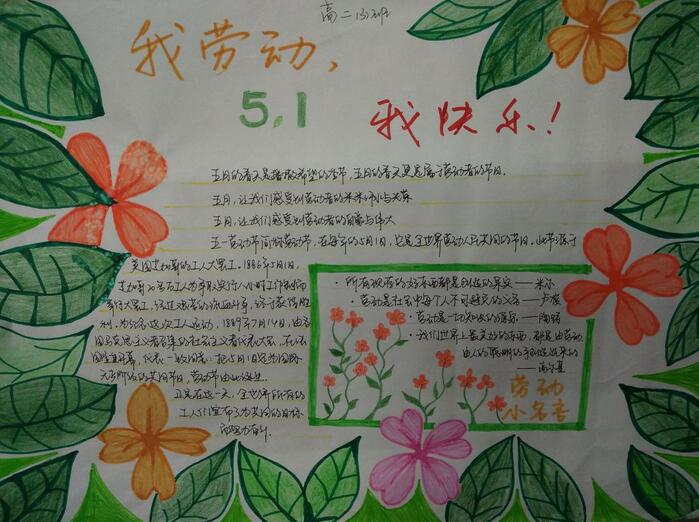 高二(3)班
我劳动，
5.1
我快乐！
五月的春天是播撒希望的季节，五月的春天更是属于劳动者的节日。
五月，让我们感受到劳动者的
五月，让我们感受到劳动者的自豪与伟大
五一劳动节简称劳动节，在每年的5月1日，它是全世界劳动人民共同的节日。此节源于
美国芝加哥的工人大罢工。1886年5月1日，
芝加哥20多万工人为争取实行八小时工作制而
举行大罢工，经过艰苦的流血斗争，终于获得胜
利，为纪念这次工人运动，1889年7月14日，由各
国马克思主义者召集的社会主义者代表大会，在法
国巴黎开幕，代表一致同意：把5月1日定为国际
无产阶级的共同节日，劳动节由此诞生。
工人们宣布了为共同的目标
而努力奋斗。
· 所有现存的好东西都是创造的果实 —— 米尔
· 劳动是社会中每个人不可避免的义务 —— 卢梭
· 劳动是一切知识的源泉 —— 陶铸
· 我们世界上最美好的东西，都是由劳动
由人的聪明的手创造出来的
—— 高尔基
劳动
小名言